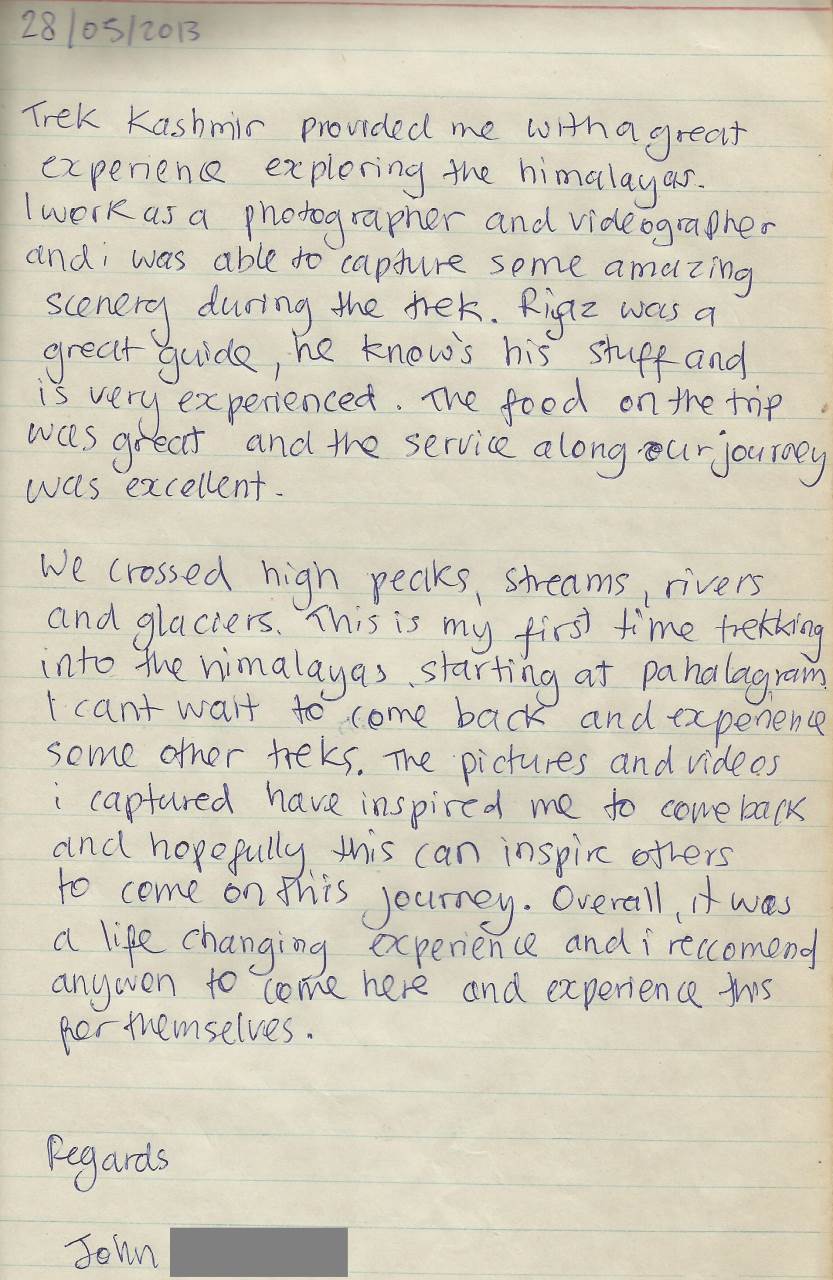 28/05/2013
Trek Kashmir provided me with a great
experience exploring the himalayas.
I work as a photographer and videographer
and i was able to capture some amazing
scenery during the trek. Riyaz was a
great guide, he know's his stuff and
is very experienced. The food on the trip
was great and the service along our journey
was excellent.
We crossed high peaks, streams, rivers
and glaciers. This is my first time trekking
into the himalayas, starting at pahalagram.
I cant wait to come back and experience
some other treks. The pictures and videos
i captured have inspired me to come back
and hopefully this can inspire others
to come on this journey. Overall, it was
a life changing experience and i reccomend
anywon to come here and experience this
for themselves.
Regards
John